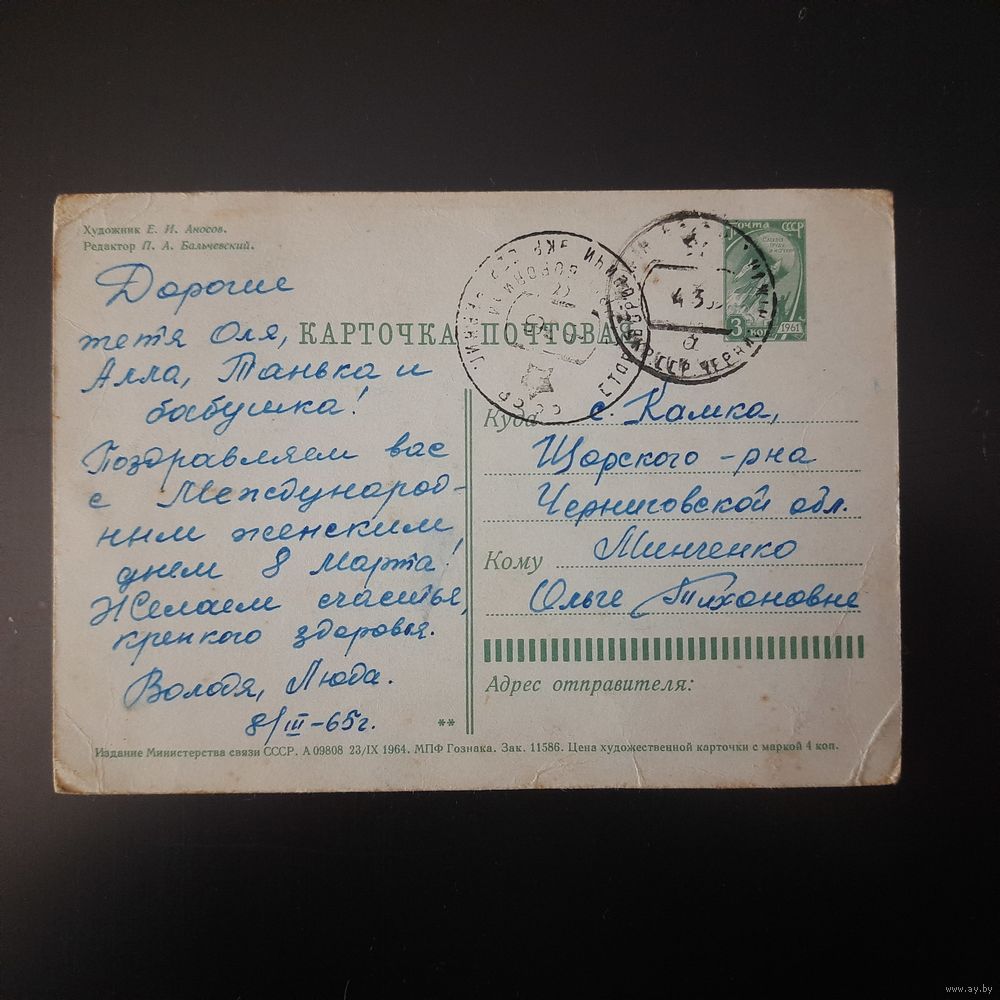 Художник Е. И. Аносов.
Редактор П. А. Бальчевский.
Дорогие
тетя Оля,
Алла, Танька и
бабушка!
Поздравляем вас
с Международ-
ным женским
днем 8 марта!
Желаем счастья,
крепкого здоровья.
Володя, Люда.
8/III-65г.
КАРТОЧКА ПОЧТОВАЯ
почта СССР
3 коп
1961
СССР
43
Куда с. Камка,
Щорского -рна
Черниговской обл.
Кому Минченко
Ольге Тихоновне
Адрес отправителя:
**
Издание Министерства связи СССР. А 09808 23/IX 1964. МПФ Гознака. Зак. 11586. Цена художественной карточки с маркой 4 коп.
www.ay.by